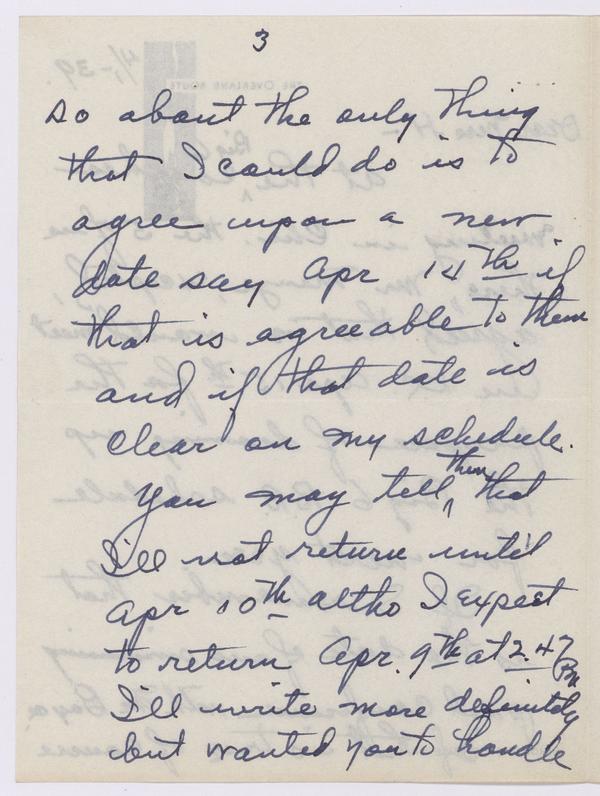 3
so about the only thing
that I could do is to
agree upon a new
date say Apr 14th if
that is agreeable to them
and if that date is
clear on my schedule.
You may tell them that
I'll not return until
Apr 10th altho I expect
to return Apr. 9th at 2.47 Pm
I'll write more definitely
but wanted you to handle